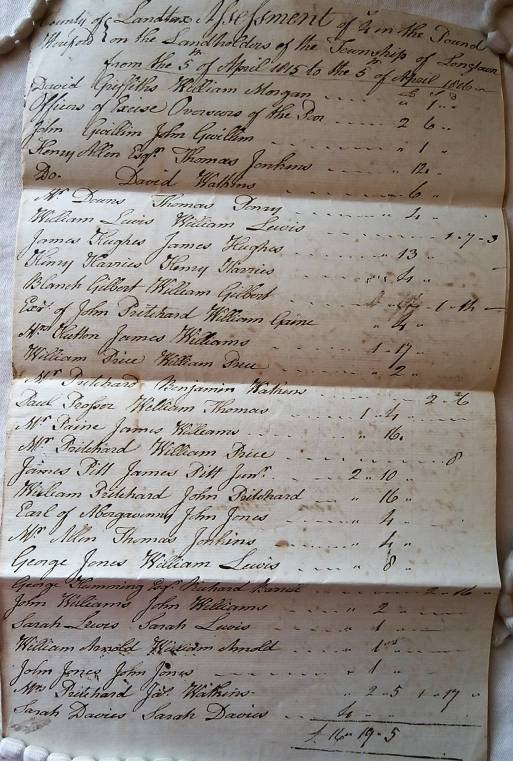 County of Landtax Assessment of 4/ in the Pound
on the Landholders of the Township of Longtown
from the 5 of April 1815 to the 5 of April 1816
David Griffiths William Morgan - - - - " 1 "
Officers of Excise Overseers of the Poor - - - 2 6 "
John Gwillim John Gwillim - - - - " 1 "
Henry Allen Esqr. Thomas Jenkins - - - - " 12 "
Do. David Watkins - - - - " 6 "
Mr Downs Thomas Parry - - - - " 4 "
William Lewis William Lewis - - - - 1 " 7 " 3
James Hughes James Hughes - - - - " 13 "
Henry Harries Henry Harries - - - - " 4 "
Blanch Gilbert William Gilbert - - - - 1 - 14
Exrs. of John Pritchard William Game " 4 "
Mrs Clutton James Williams - - - - 1 - 17 "
William Price William Price - - - - " 2 "
Mr Pritchard Benjamin Watkins - - - - 2 - 6
Paul Prosser William Thomas - - - - 1 - 4 "
Mr Paine James Williams - - - - " 16 "
Mr Pritchard William Price - - - - 8
James Pitt James Pitt Junr. - - - - 2 " 10 "
William Pritchard John Pritchard - - - - " 16 "
Earl of Abergavenny John Jones - - - - " 4 "
Mrs Allen Thomas Jenkins - - - - " 4 "
George Jones William Lewis - - - - " 8 "
George Esqr. Richard - - - - 2 - 16 "
John Williams John Williams - - - - " 2 "
Sarah Lewis Sarah Lewis - - - - " 1
William Arnold William Arnold - - - - " 1
John Jones John Jones - - - - " 1 "
Mrs Pritchard Jas. Watkins - - - - " 2 - 5 1 - 17 "
Sarah Davies Sarah Davies - - - - 4
£ 16 " 19 - 5